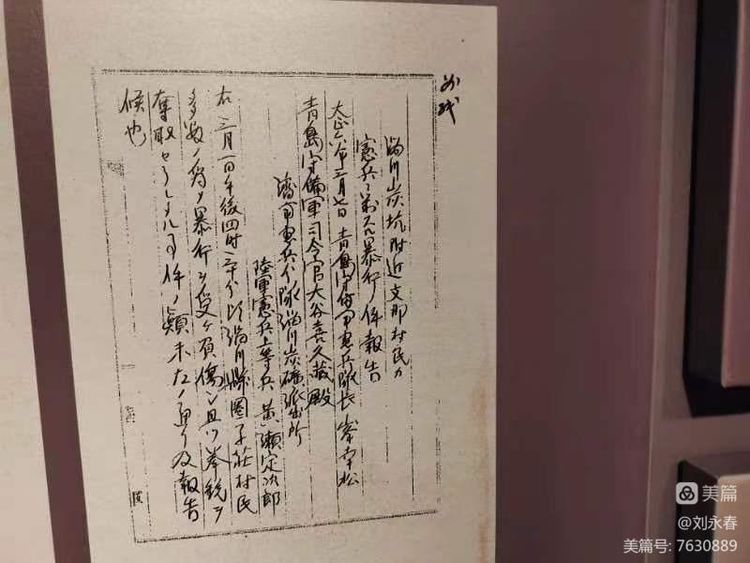 淄川炭坑附近支那村民カ
憲兵ニ対スル暴行ノ件報告
大正六年三月七日 青島守備軍憲兵隊長 峯幸松
青島守備軍司令官大谷喜久蔵殿
済南憲兵分隊淄川炭礦派出所
陸軍憲兵上等兵 黄瀬定次郎
右三月一日午後四時三十分頃淄川縣圏子莊村民
多数ノ為メ暴行ヲ受ケ負傷シ且ツ拳銃ヲ
奪取セラレタル事件ノ顛末左ノ通リ及報告
候也
美篇
@刘永春
美篇号: 7630889